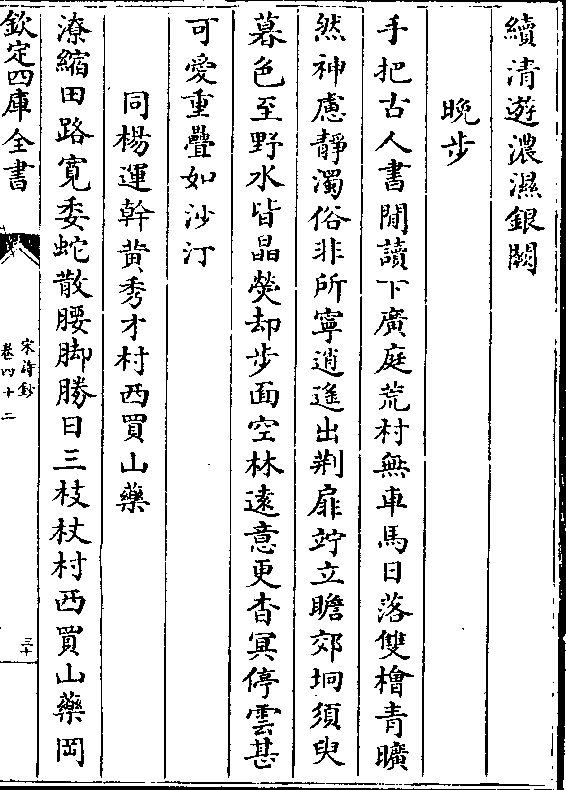 續清遊濃濕銀闕
晚步
手把古人書閒讀下廣庭荒村無車馬日落雙檜青曠
然神慮靜濁俗非所寧逍遙出荆扉竚立瞻郊坰須臾
暮色至野水皆晶熒却步面空林逺意更杳冥停雲甚
可愛重疊如沙汀
同楊運幹黄秀才村西買山藥
潦縮田路寛委蛇散腰脚勝日三枝杖村西買山藥岡
欽定四庫全書
宋詩鈔
卷四十二
三十